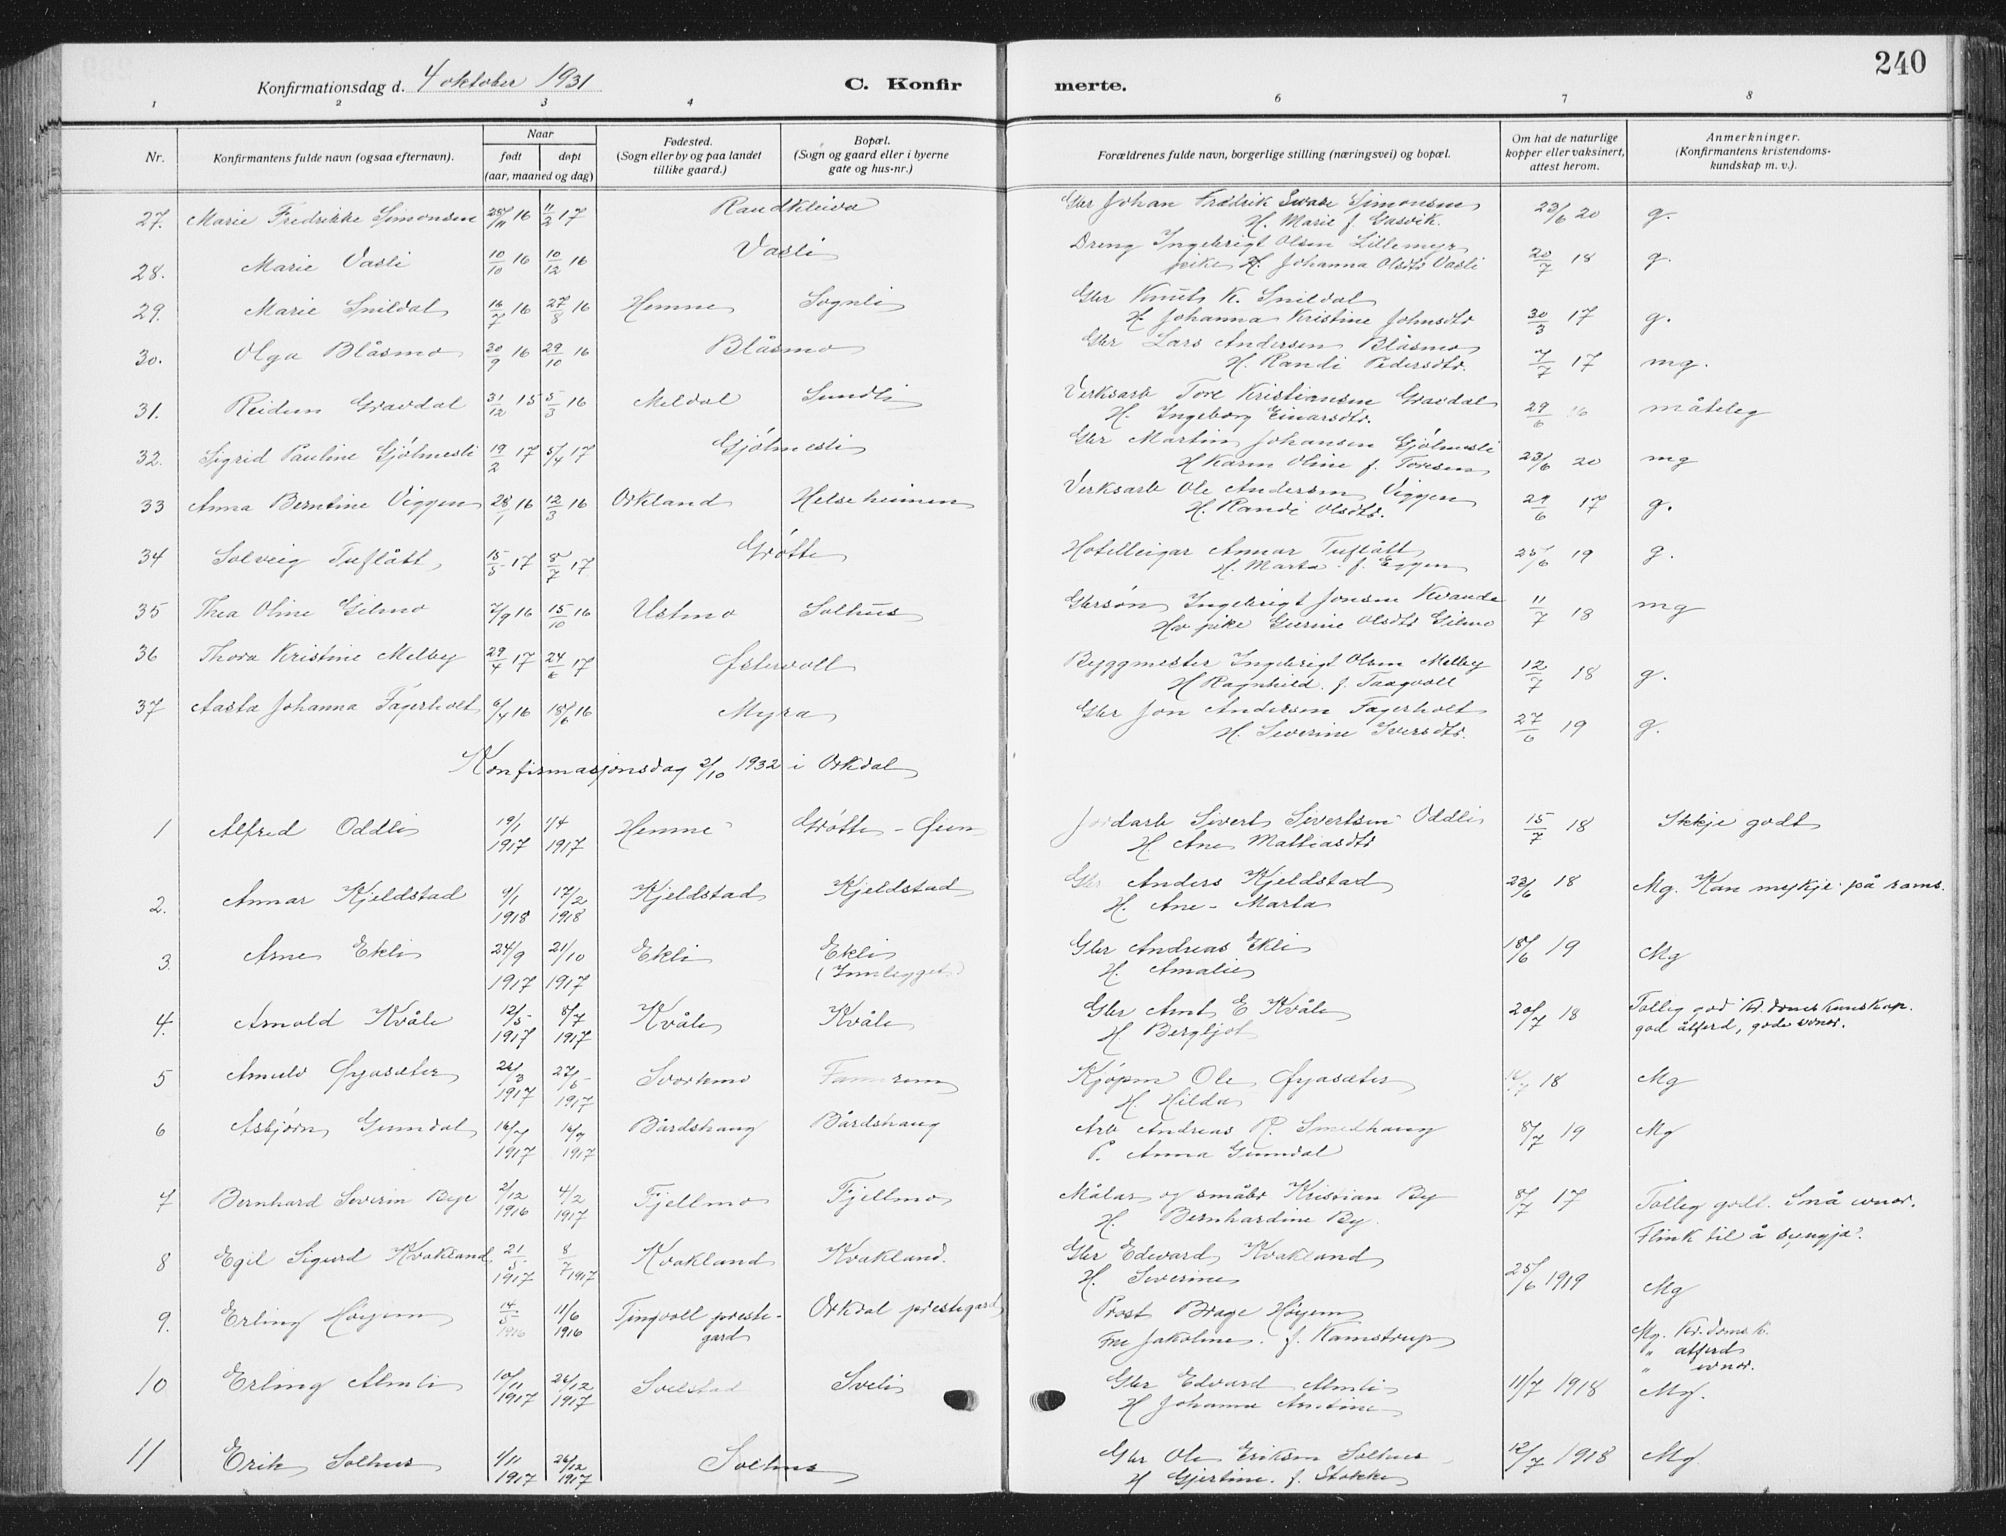 240
Konfirmationsdag d. 4 oktober 1931 C. Konfirmerte.
1 2 3 4 6 7 8
Nr. Konfirmantens fulde navn (ogsaa efternavn). Naar født døpt (aar, maaned og dag) Fødested. (Sogn eller by og paa landet tillike gaard.) Bopæl. (Sogn og gaard eller i byerne gate og hus-nr.) Forældrenes fulde navn, borgerlige stilling (næringsvei) og bopæl. Om hat de naturlige kopper eller vaksinert, attest herom. Anmerkninger. (Konfirmantens kristendoms-kundskap m. v.).
27. Marie Fredrikke Simonsen 28/11 16 11/2 17 Raudkleiva Gbr Johan Fredrik Simonsen 23/6 20 g.
H. Marie f. Gasvik.
28. Marie Vasli 10/10 16 10/12 16 Vasli Dreng Ingebrigt Olsen Lillemyr 20/7 18 g.
pike Johanna Olsdtr Vasli
29. Marie Snildal 16/7 16 27/8 16 Hemne Sognli Gbr Knut K. Snildal 30/3 17 g.
H. Johanna Kristine Johnsdtr
30. Olga Blåsmo 30/9 16 29/10 16 Blåsmo Gbr Lars Andersen Blåsmo 7/7 17 mg.
H. Randi Pedersdtr.
31. Reidun Gravdal 31/12 15 5/3 16 Meldal Sundli Verksarb Tore Kristiansen Gravdal 29/6 16 måteleg
H. Ingeborg Einarsdtr.
32. Sigrid Pauline Gjølmesli 19/2 17 5/4 17 Gjølmesli Gbr Martin Johansen Gjølmesli 23/6 20 mg
H Karen Oline f. Toresen
33 Anna Berntine Viggen 28/1 16 12/3 16 Orkland Helseheimen Verksarb Ole Andersen Viggen 29/6 17 g.
H. Randi Olsdtr.
34 Solveig Tuflått 15/5 17 8/7 17 Grøtte Hotelleigar Annar Tuflått 25/6 19 g.
H. Marta f. Eggen
35 Thea Oline Gilmo 7/9 16 15/10 16 Ustmo Solhus Gbrsøn Ingebrigt Jonsen Kvande 11/7 18 mg
pike Gurine Olsdtr Gilmo
36 Thora Kristine Melby 29/4 17 24/6 17 Østervoll Byggmester Ingebrigt Olsen Melby 12/7 18 g.
H Ragnhild f. Taagvoll
37 Aasta Johanna Fagerholt 6/4 16 18/6 16 Myra Gbr Jon Andersen Fagerholt 27/6 19 g.
H. Severine Iversdtr.
Konfirmasjonsdag 2/10 1932 i Orkdal
1 Alfred Oddli 19/1 1917 1/4 1917 Hemne Grøtte - Øien Jordarb Sivert Sivertsen Oddli 15/7 18 Ikkje godt
H. Ane Mattiasdtr
2. Annar Kjeldstad 9/1 1918 17/2 1918 Kjeldstad Kjeldstad Gbr Anders Kjeldstad 23/6 18 Mg. Kan mykje på rams.
H. Ane - Marta
3. Arne Ekli 24/9 1917 21/10 1917 Ekli Ekli Gbr Andreas Ekli 18/6 19 Mg
(Innlegget) H. Amalie
4. Arnold Kvåle 12/5 1917 8/7 1917 Kvåle Kvåle Gbr Arnt E Kvåle 20/7 18 Tolleg god Kr.domskunskap.
H. Bergljot god åtferd, gode evner.
5 Øyasæter 1917 27/5 1917 Svorkmo Fannrem Kjøpm Ole Øyasæter 18 Mg
H Hilda
6 Asbjørn Gunndal 16/4 1917 1917 Bårdshaug Bårdshaug Arb Andreas R. Smedhaug 8/7 19 Mg
P. Anna Gunndal
7 Bernhard Severin Bye 2/12 1916 4/2 1917 Fjellmo Fjellmo Målar og småbr Kristian By 8/7 17 Tolleg godt. Små evner.
H. Bernhardine By. Flink til å syngja?
8 Egil Sigurd Kvakland 21/5 1917 8/7 1917 Kvakland Kvakland. Gbr Edevard Kvakland 25/6 1919 Mg
H. Severine
9. Erling Høyem 14/5 1916 11/6 1916 Tingvoll prestegard Orkdal prestegard Prost Brage Høyem Mg. Kr.domsk.
Fru Jakoline f. Kamstrup " åtferd
" evner.
10 Erling Almli 10/11 1917 26/12 1917 Solstad Sveli Gbr Edvard Almli 11/7 1918 Mg.
H Johanna
11 Erik Solhus 4/11 1917 26/12 1917 Solhus Gbr Ole Eriksen Solhus 12/7 1918 Mg
H Gjertine f. Stokke